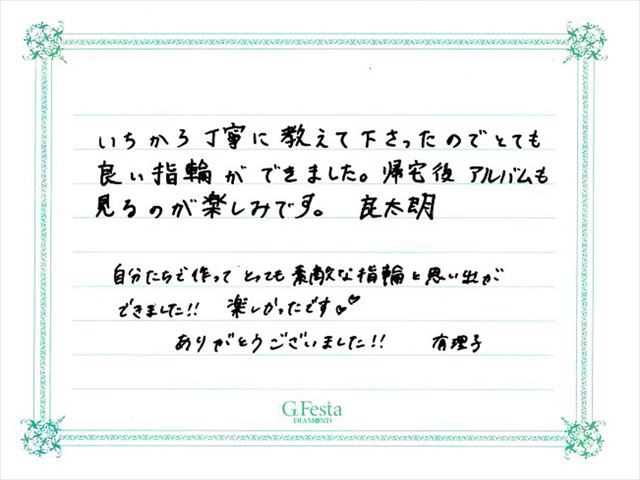 いちから丁寧に教えて下さったのでとても
良い指輪ができました。帰宅後アルバムも
見るのが楽しみです。 良太朗
自分たちで作ってとっても素敵な指輪と思い出が
できました!! 楽しかったです♡♡
ありがとうございました!! 有理子
G.Festa
DIAMOND